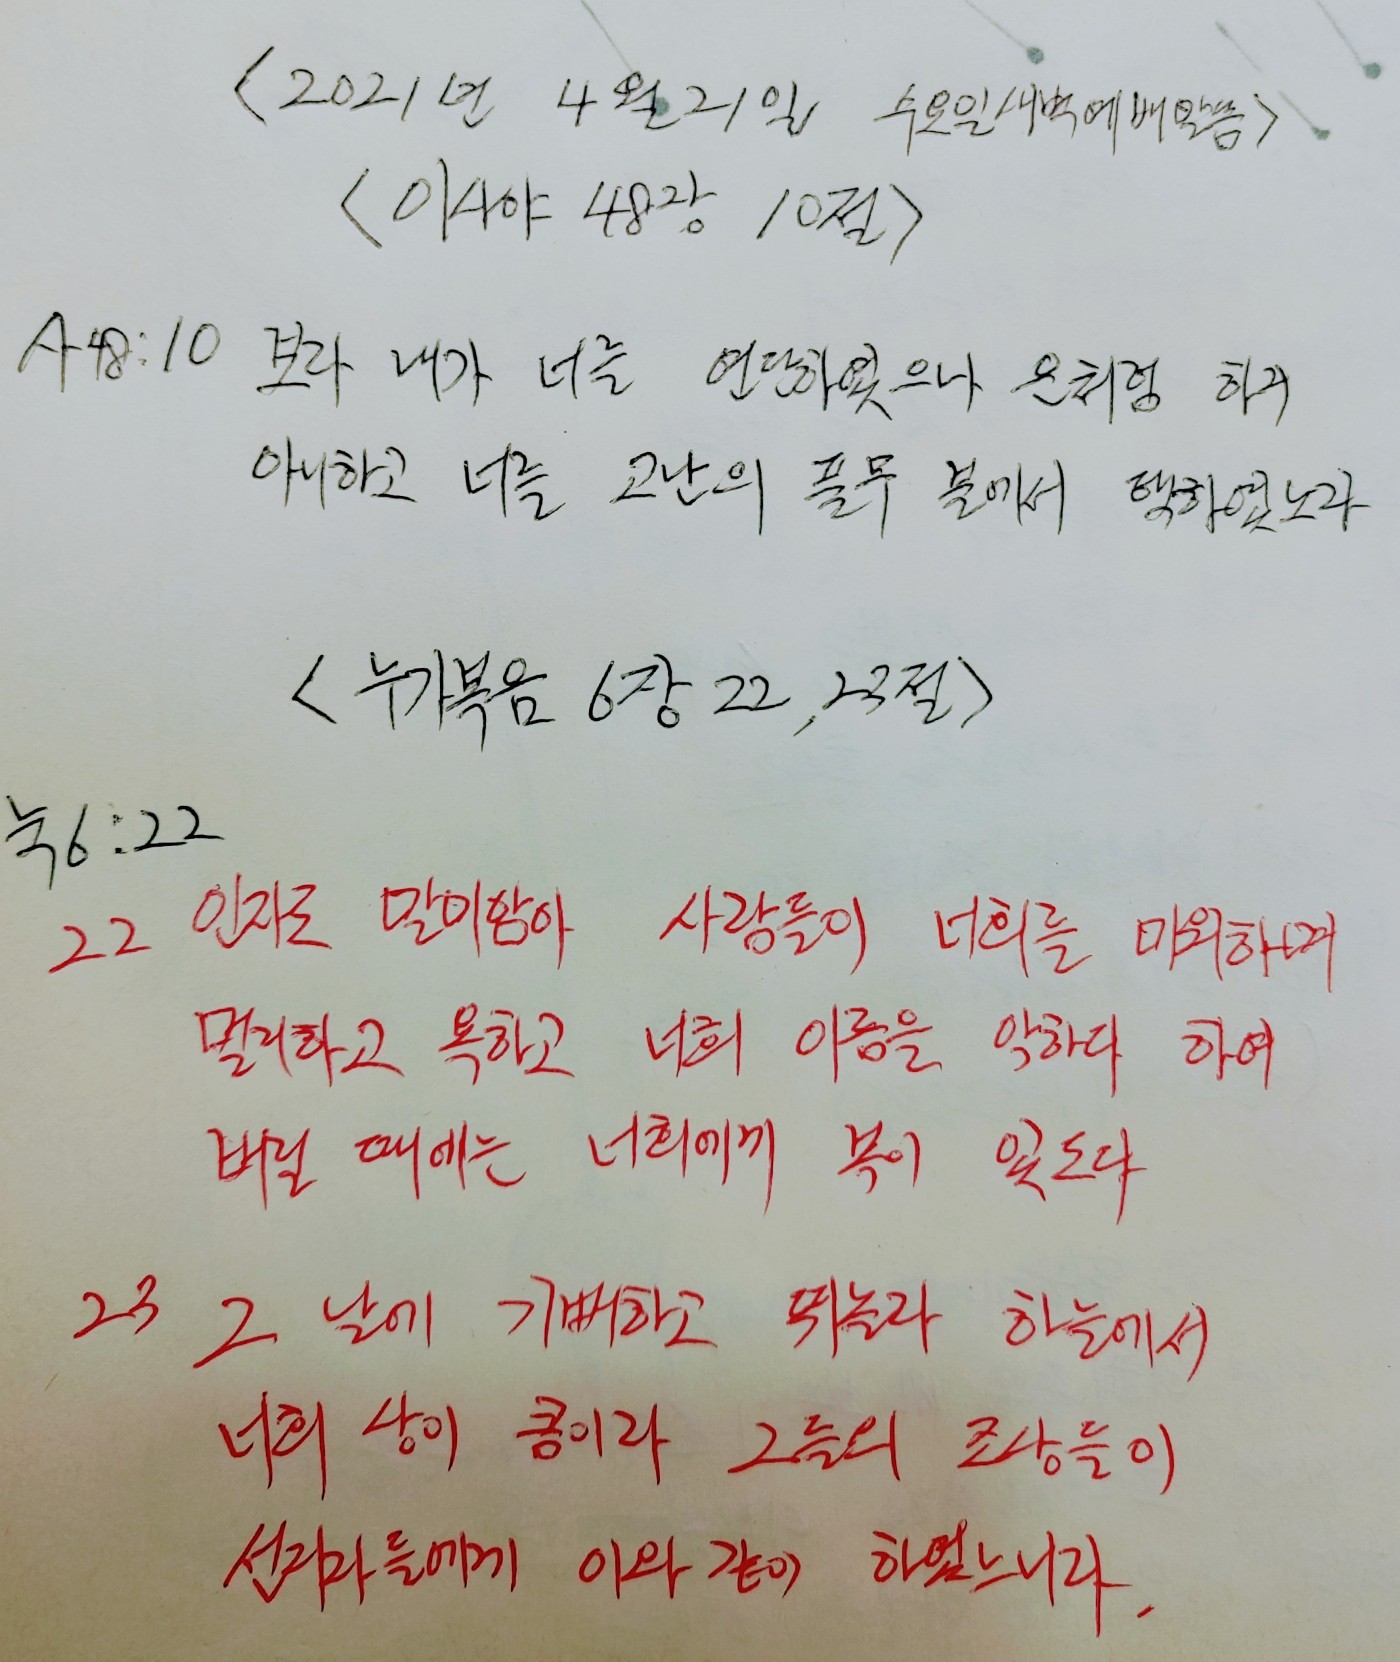 <2021년 4월 21일 수요일새벽예배말씀>
<이사야 48장 10절>
사48:10 보라 내가 너를 연단하였으나 은처럼 하지
아니하고 너를 고난의 풀무 불에서 택하였노라
<누가복음 6장 22, 23절>
눅6:22
22 인자로 말미암아 사람들이 너희를 미워하며
멀리하고 욕하고 너희 이름을 악하다 하여
버릴 때에는 너희에게 복이 있도다
23 그 날에 기뻐하고 뛰놀라 하늘에서
너희 상이 큼이라 그들의 조상들이
선지자들에게 이와 같이 하였느니라.